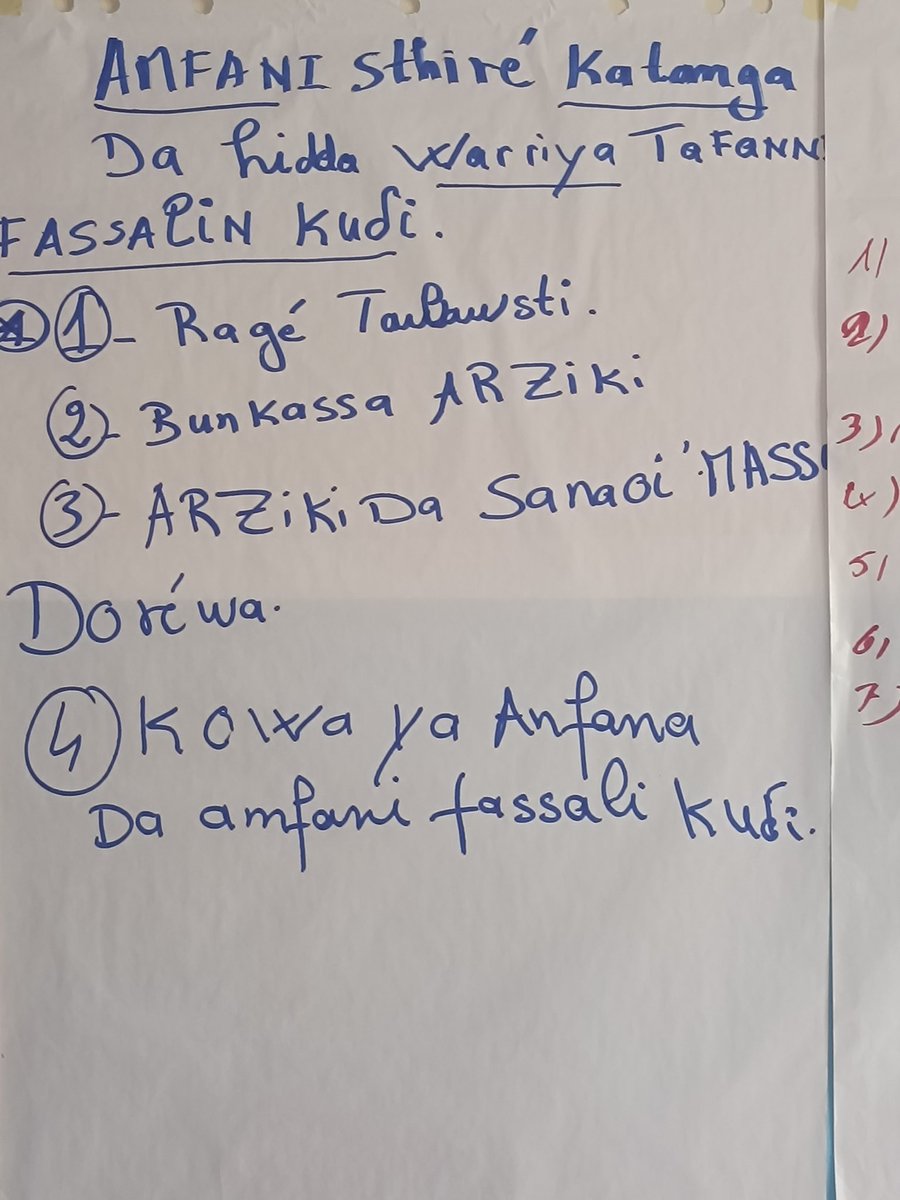 AMFANI Sthiré Katanga
Da hidda Warriya TaFANN
FASSALIN Kudi.
1 1- Ragé Taubawsti.
2- Bunkassa ARZiki
3- ARZiKi Da Sanaoi' MASS
Doréwa.
4 Kowa ya Anfana
Da amfani fassali Kudi.
1)
2)
3)
4)
5)
6)
7)